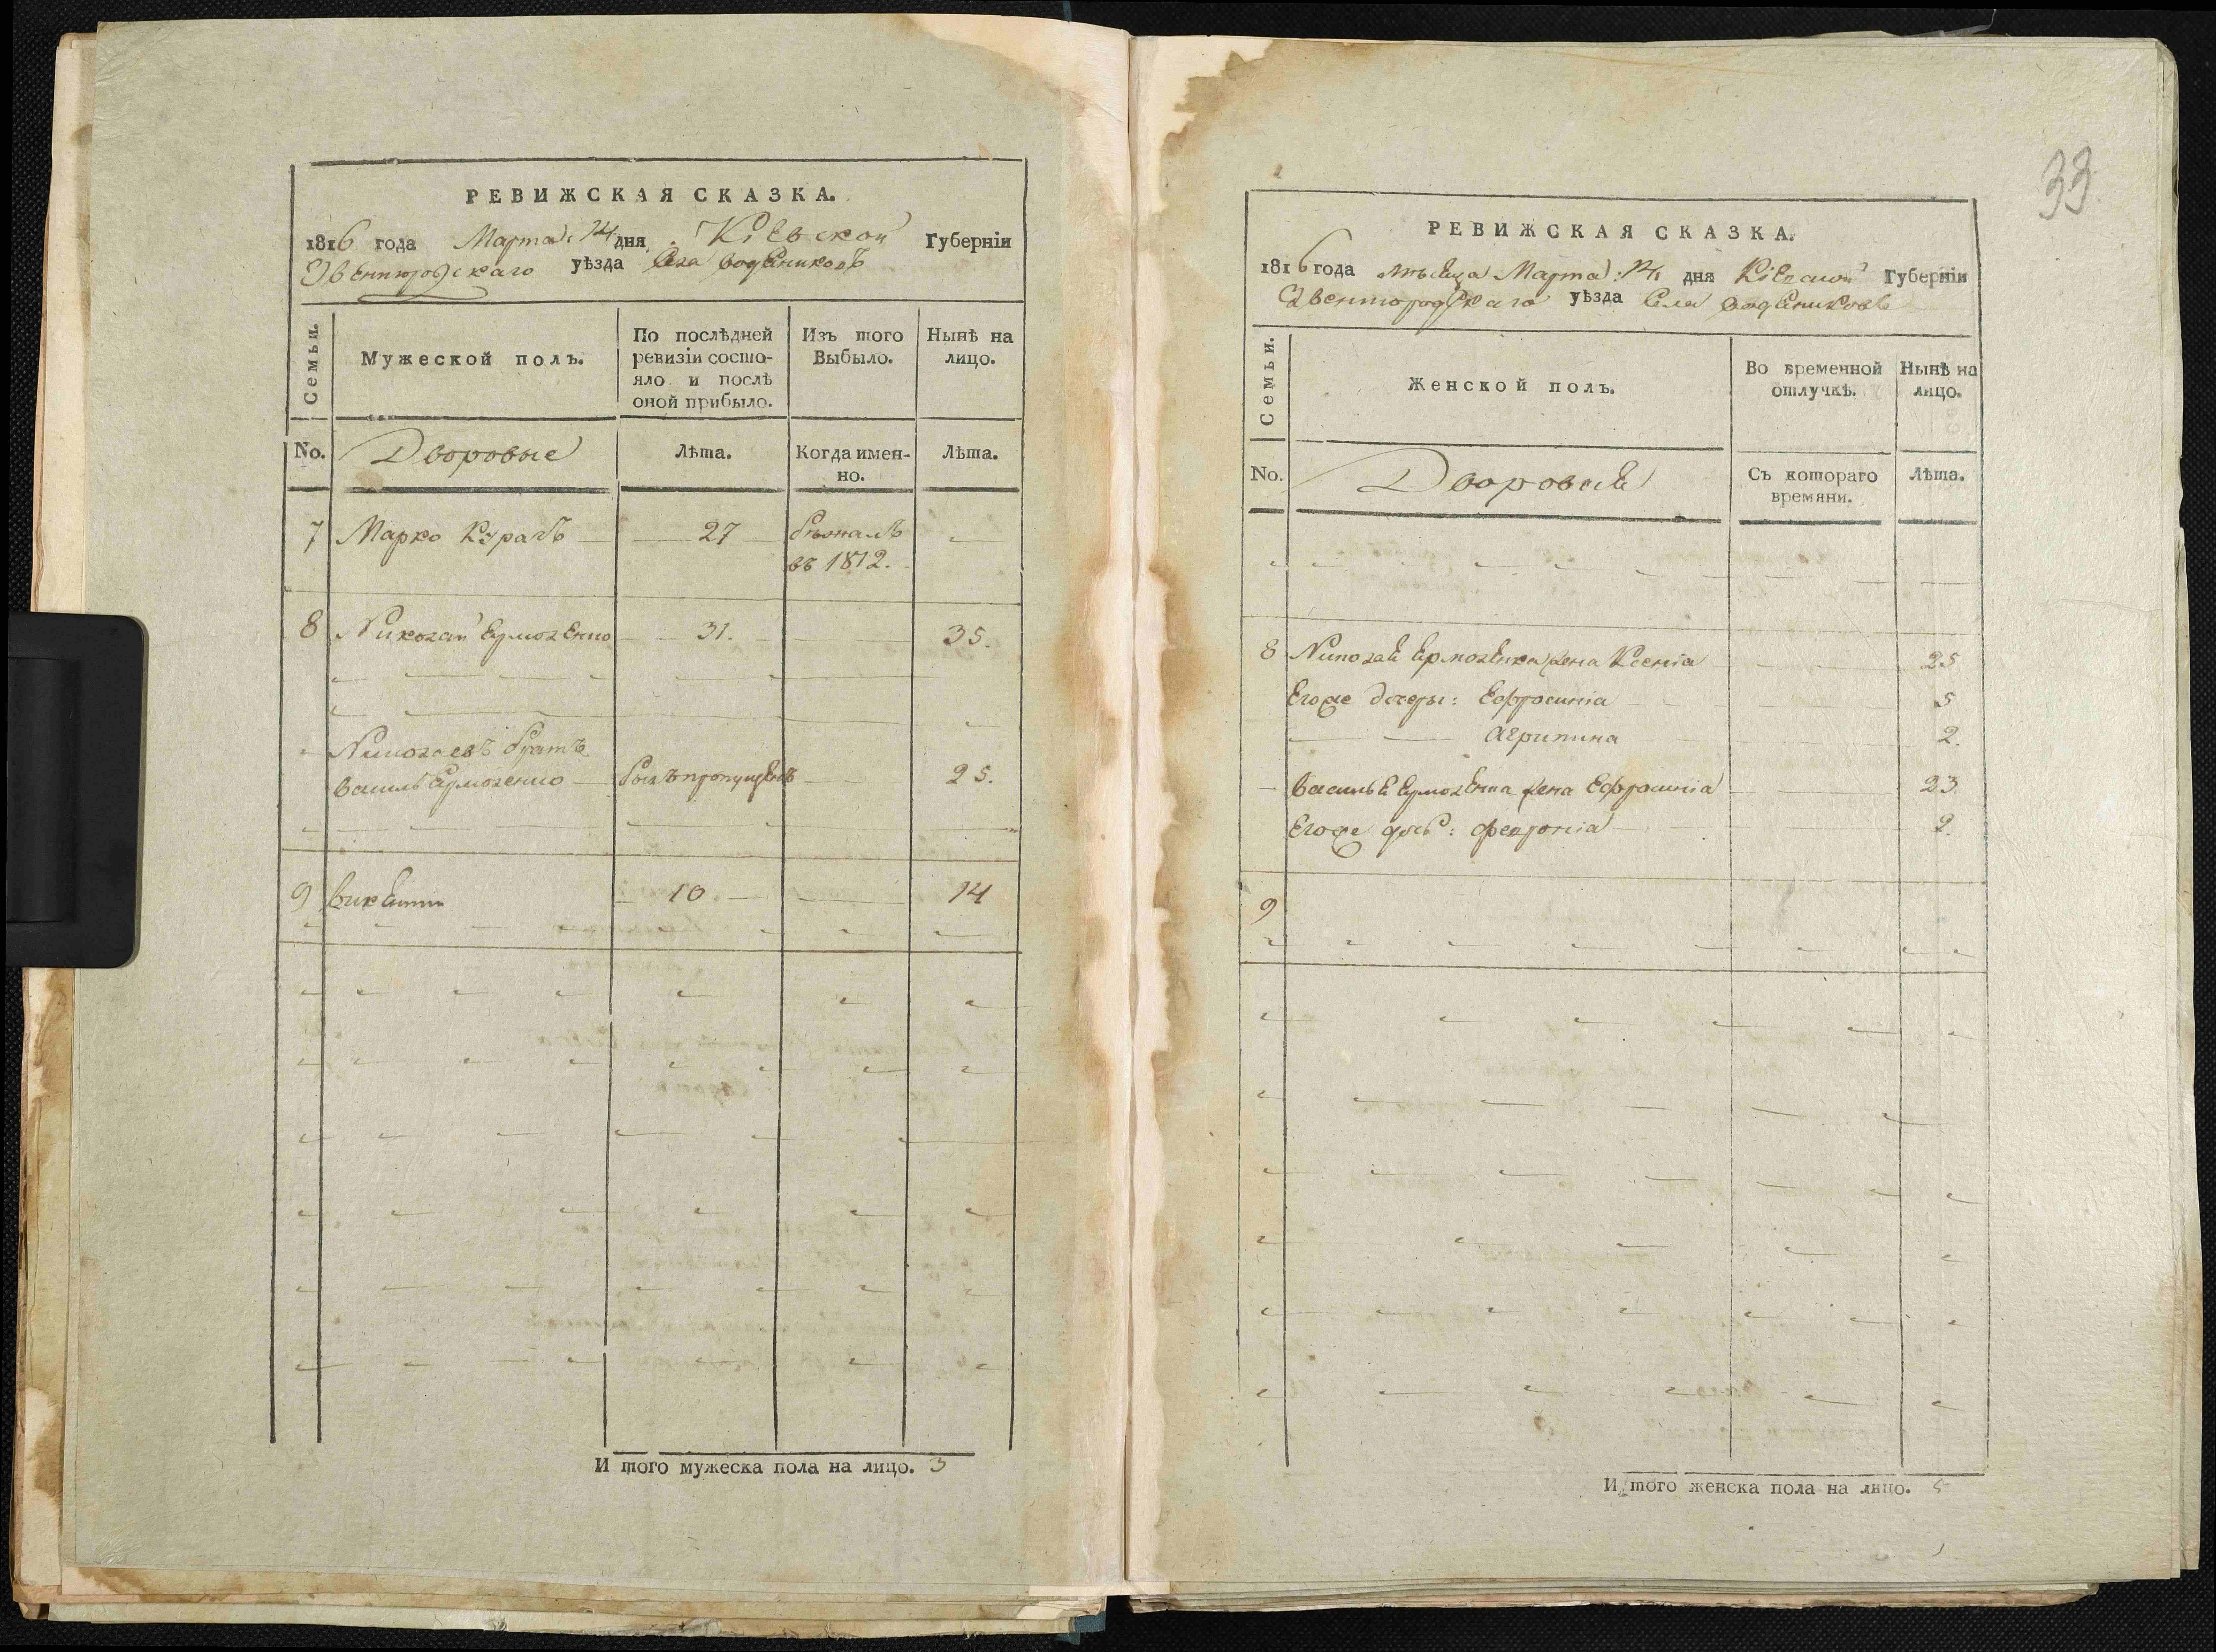 РЕВИЖСКАЯ СКАЗКА.
1816 года Марта 14 дня Кіевской Губерніи
Звенигородскаго уѣзда Села Водениковъ
Семьи.
Мужеской полъ.
По послѣдней ревизіи состояло и послѣ оной прибыло.
Изъ того Выбыло.
Нынѣ на лицо.
No. Дворовые Лѣта. Когда именно. Лѣта.
7 Марко 27 бѣжалъ
въ 1812.
8 Николай Ермоленко 31. 35.
Николаевъ братъ
Василь Ермоленко былъ пропущенъ 25.
9 Викентий 10 14
И того мужеска пола на лицо. 3
33
РЕВИЖСКАЯ СКАЗКА.
1816 года мѣсяца Марта 14 дня Кіевской Губерніи
Звенигородскаго уѣзда Села Водениковъ
Семьи.
Женской полъ.
Во временной отлучкѣ.
Нынѣ на лицо.
No. Дворовые Съ котораго времяни. Лѣта.
8 Николая Ермоленка жена Ксенія 25
Егоже дочеры: Ефросинія 5
Агрипина 2.
Василья Ермоленка жена Ефросинія 23
Егоже дочь: Февронія 2.
9
И того женска пола на лицо. 5